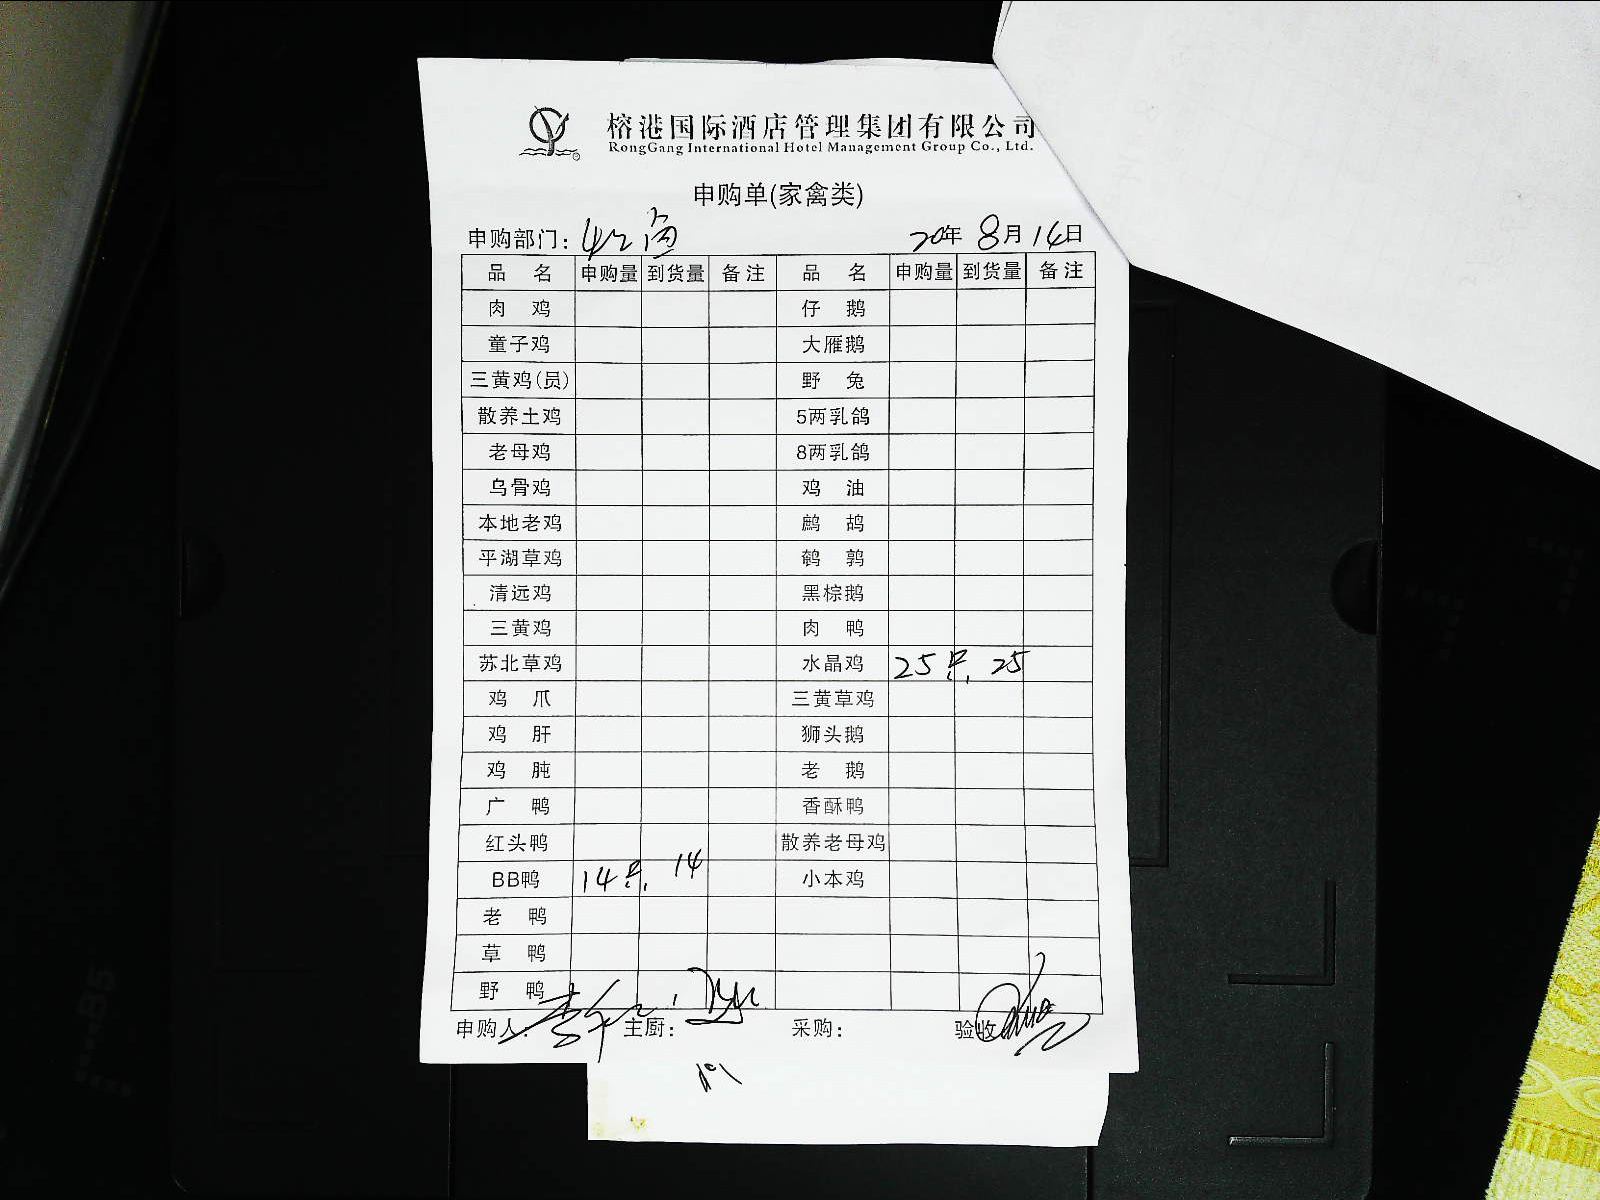 榕港国际酒店管理集团有限公司
RongGang International Hotel Management Group Co., Ltd.
申购单(家禽类)
申购部门: 20年 8月 14日
品 名 申购量 到货量 备注 品 名 申购量 到货量 备注
肉 鸡 仔 鹅
童子鸡 大雁鹅
三黄鸡(员) 野 兔
散养土鸡 5两乳鸽
老母鸡 8两乳鸽
乌骨鸡 鸡 油
本地老鸡 鹧 鸪
平湖草鸡 鹌 鹑
清远鸡 黑棕鹅
三黄鸡 肉 鸭
苏北草鸡 水晶鸡 25只. 25
鸡 爪 三黄草鸡
鸡 肝 狮头鹅
鸡 肫 老 鹅
广 鸭 香酥鸭
红头鸭 散养老母鸡
BB鸭 14只. 14 小本鸡
老 鸭
草 鸭
野 鸭
申购人: 主厨: 采购: 验收
B5